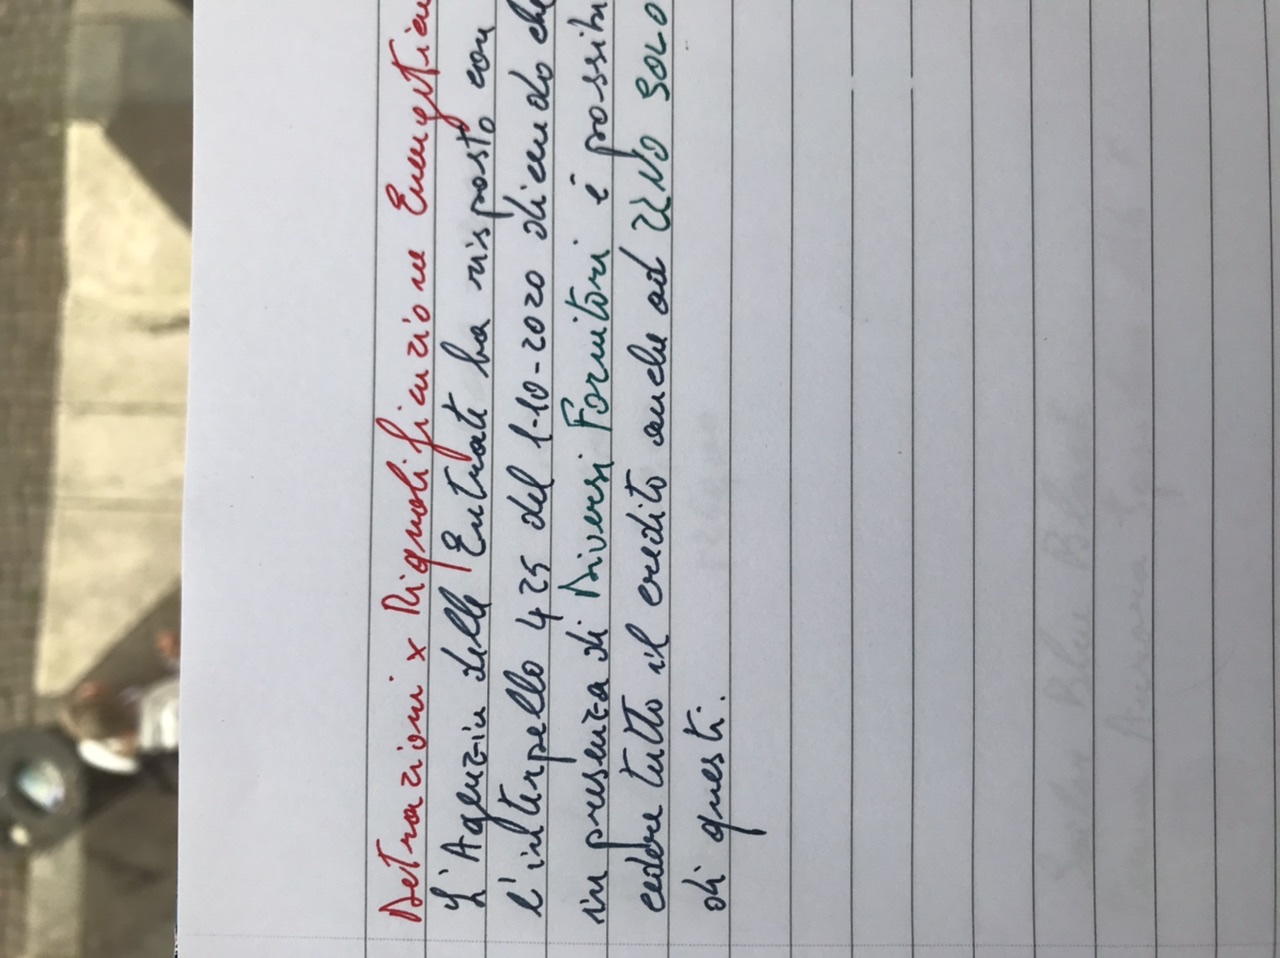 Detrazioni x Riqualificazione Energetica
L'Agenzia delle Entrate ha risposto con
l'interpello 425 del 1-10-2020 dicendo che
in presenza di Diversi Fornitori è possibi
cedere tutto il credito anche ad UNO SOLO
di questi.